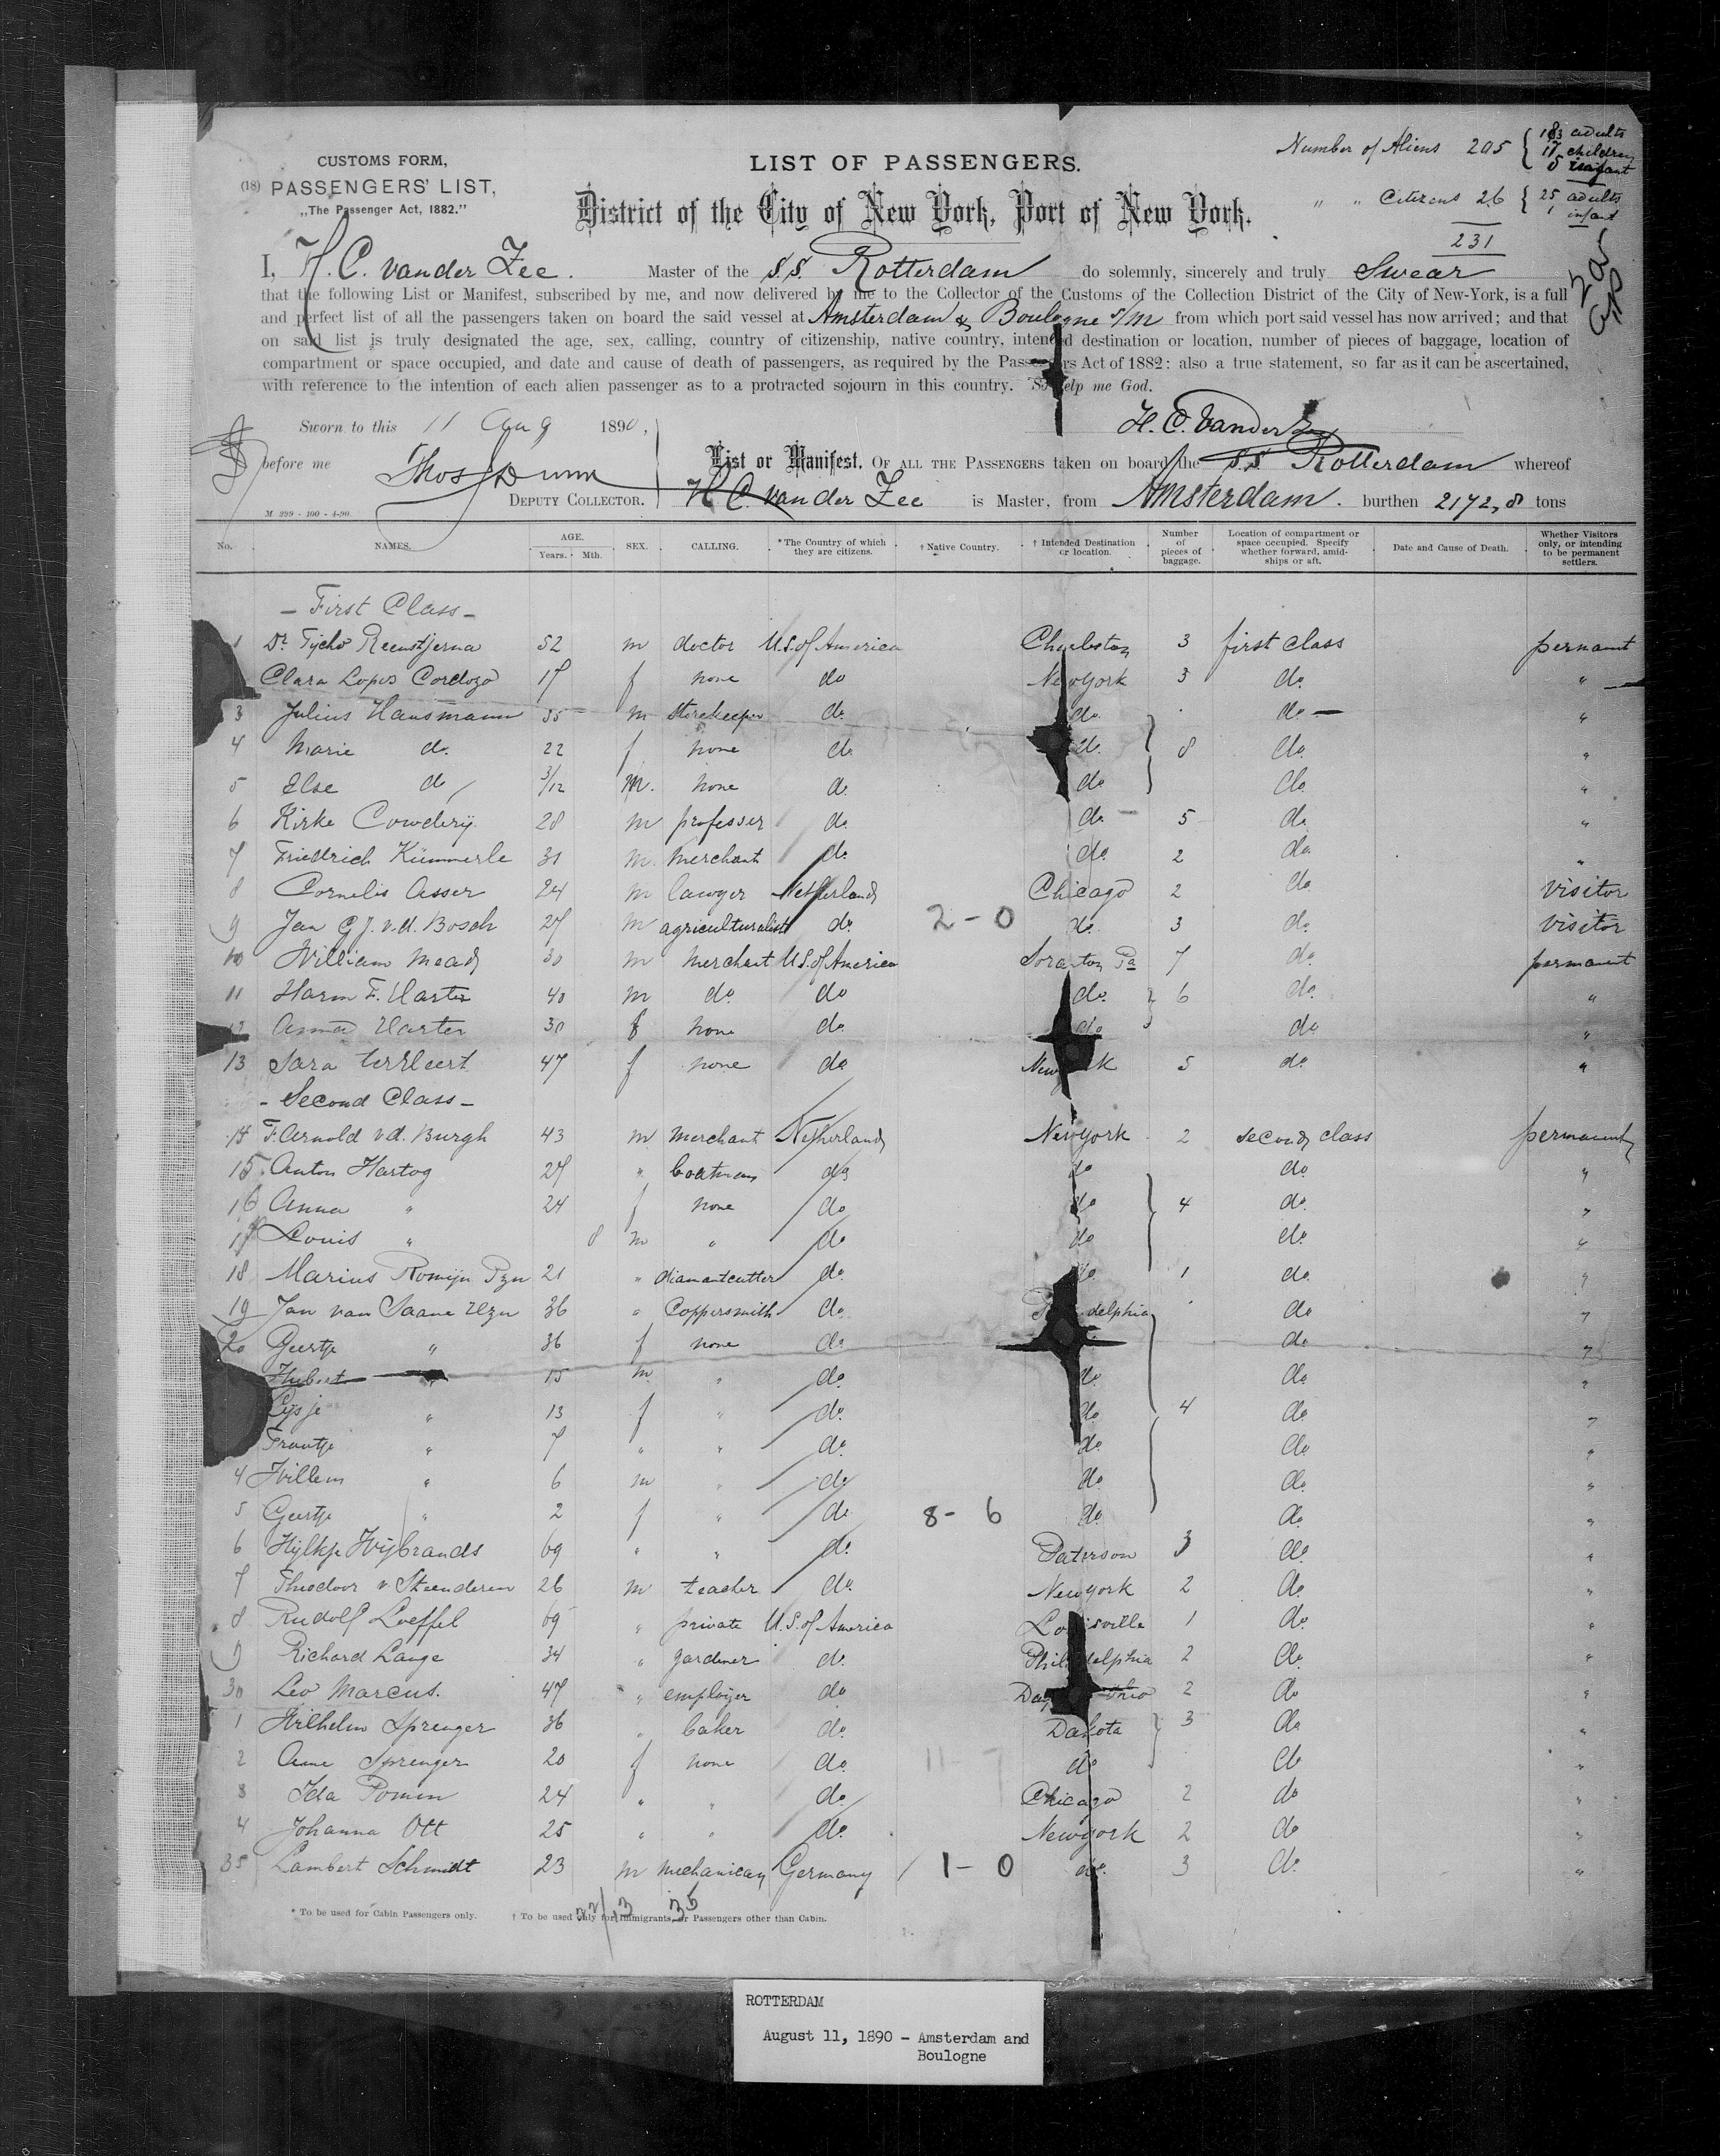 CUSTOMS FORM,
(18) PASSENGERS' LIST,
„The Passenger Act, 1882."
LIST OF PASSENGERS.
District of the City of New York, Port of New York.
Number of Aliens 205 { 183 adults
17 children
5 infant
" " Citizens 26 { 25 adults
1 infant
231
I, H. C. van der Zee. Master of the S.S. Rotterdam do solemnly, sincerely and truly Swear
that the following List or Manifest, subscribed by me, and now delivered by me to the Collector of the Customs of the Collection District of the City of New-York, is a full
and perfect list of all the passengers taken on board the said vessel at Amsterdam & Boulogne s/m from which port said vessel has now arrived; and that
on said list is truly designated the age, sex, calling, country of citizenship, native country, intended destination or location, number of pieces of baggage, location of
compartment or space occupied, and date and cause of death of passengers, as required by the Passengers Act of 1882: also a true statement, so far as it can be ascertained,
with reference to the intention of each alien passenger as to a protracted sojourn in this country. So help me God.
Sworn to this 11 Aug 1890,
H. C. van der Zee
before me Thos Dunn
DEPUTY COLLECTOR.
List or Manifest. OF ALL THE PASSENGERS taken on board the S.S. Rotterdam whereof
H C. van der Zee is Master, from Amsterdam. burthen 2172,8 tons
M 299 - 100 - 4-90.
No. NAMES. AGE. Years. Mth. SEX. CALLING. *The Country of which they are citizens. † Native Country. † Intended Destination or location. Number of pieces of baggage. Location of compartment or space occupied. Specify whether forward, amid-ships or aft. Date and Cause of Death. Whether Visitors only, or intending to be permanent settlers.
- First Class -
1 Dr. Tycho 52 m doctor U.S. of America Charleston 3 first class
Clara Lopes Cordozo 17 f none do New York 3 do. "
3 Julius Hausmann 35 m storekeeper do. do. do. "
4 Marie do. 22 f none do do. 8 do. "
5 Else do 3/12 m. none do. do do. "
6 Kirke Cowdery 28 m professer do. do. 5 do. "
7 Friedrich Kümmerle 31 m. merchant do. do. 2 do. "
8 Cornelis Asser 24 m lawyer Netherland Chicago 2 do. visitor
9 Jan G J. v.d. Bosch 27 m agriculturalist do. 2 - 0 do. 3 do. visitor
10 William Mead 30 m merchant U.S. of America Scranton Pa 7 do. permanent
11 Harm F. Harter 40 m do. do do. 6 do. "
12 Anna Harter 30 f none do. do do "
13 Sara 47 f none do New York 5 do. "
- Second Class -
14 F. Arnold v.d. Burgh 43 m merchant Netherland New York 2 second class permanent
15 Anton Hartog 27 " boatman do do do. "
16 Anna " 24 f none do do 4 do. "
17 Louis " 8 m " do do do. "
18 Marius Romijn Pzn 21 " diamantcutter do. do 1 do. "
19 Jan van Saane Hzn 36 " Coppersmith do. Philadelphia do "
20 Geertje " 36 f none do. do. "
Hubert " 15 m " do. do. do. "
Lijsje " 13 f " do. do 4 do "
Trautje " 7 " " do. do. do. "
4 Willem " 6 m " do. do. do. "
5 Geertje " 2 f " do 8 - 6 do. do. "
6 Hylkje Wijbrands 69 " " do. Paterson 3 do. "
7 Theodoor v Steenderen 26 m teacher do. New York 2 do. "
8 Rudolf Loeffel 69 " private U.S. of America Louisville 1 do. "
9 Richard Lange 34 " gardener do. Philadelphia 2 do. "
30 Leo Marcus. 47 " employer do Ohio 2 do "
1 Wilhelm Sprenger 36 " baker do. Dakota 3 do "
2 Anne Sprenger 20 f none do. 11 - 7 do do "
3 Ida 24 " " do. Chicago 2 do "
4 Johanna Ott 25 " " do. New york 2 do "
35 Lambert Schmidt 23 m mechanican Germany 1 - 0 do. 3 do. "
22/13 35
* To be used for Cabin Passengers only. † To be used only for Immigrants, or Passengers other than Cabin.
ROTTERDAM
August 11, 1890 - Amsterdam and
Boulogne